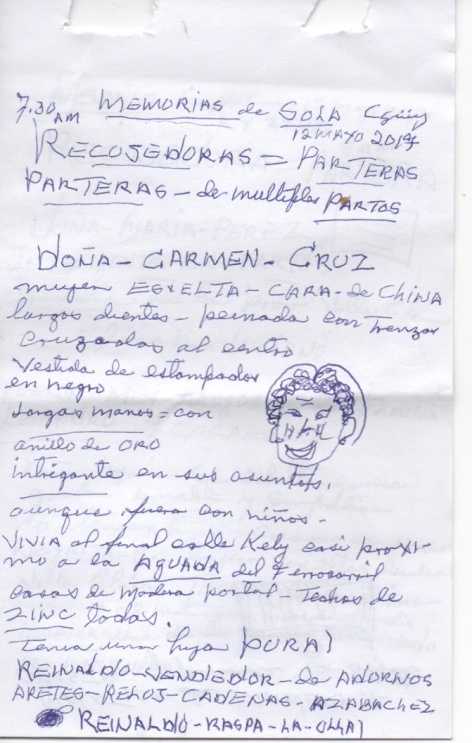 7.30 AM MEMORIAS de SOLA Cgüey
12 MAYO 2017
RECOJEDORAS = PARTERAS
PARTERAS - de multiples PARTOS
DOÑA - CARMEN - CRUZ
mujer ESVELTA - CARA - de CHINA
largos dientes - peinada con Trenzas
cruzadas al centro
vestida de estampados
en negro
largas manos = con
anillo de ORO
intrigante en sus asuntos.
aunque fuera con niños -
VIVIA al final calle Kely casi proxi-
mo a la AGUADA del Ferrocarril
casas de madera portal - Techos de
ZINC todas.
Tenia una hija PURA)
REINALDO - VENDEDOR - de ADORNOS
ARETES - RELOJ - CADENAS - AZABACHEZ
REINALDO - RASPA - LA - OLLA)